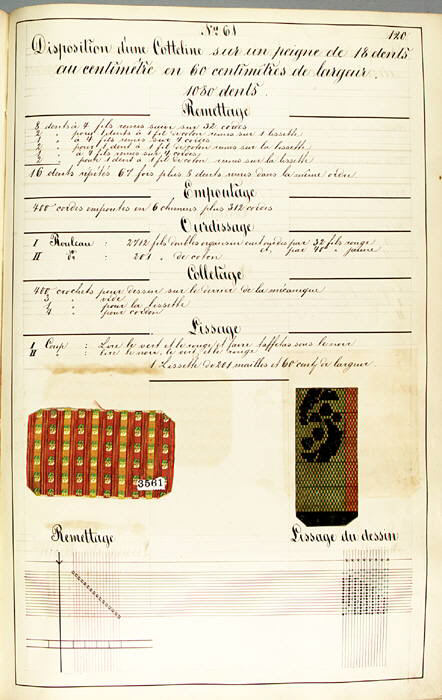 Nº 61
120
Disposition d'une Cotteline sur un peigne de 18 dents
au centimètre en 60 centimètres de largeur.
1080 dents.
Remettage
8 dents à 4 fils remis suivis sur 32 cordes
2 " pour 1 dents à 1 fil de coton remis sur 1 lissette
2 " à 4 fils remis sur 4 cordes
2 " pour 1 dent à 1 fil de coton remis sur la lissette
2 " à 4 fils remis sur 4 cordes
2 " pour 1 dent à 1 fil de coton remis sur la lissette
16 dents répétés 67 fois plus 8 dents remis dans le même ordre
Empoutage
400 cordes empoutés en 6 chemins plus 312 cordes
Ourdissage
I Rouleau : 2712 fils doubles organsin ourdis par 32 fils rouge
et, par 40 " jaune
II dº : 201 " de coton
Colletage
400 crochets pour dessin sur le derrière de la mécanique
3 " vide
1 " pour la lissette
4 " pour cordon
Lissage
I Coup : Lire le vert et le rouge et faire taffetas sous le noir
II " : Lire le noir, le vert, et le rouge
1 Lissette de 201 mailles et 60 cent. de largeur.
3561
Remettage
Lissage du dessin